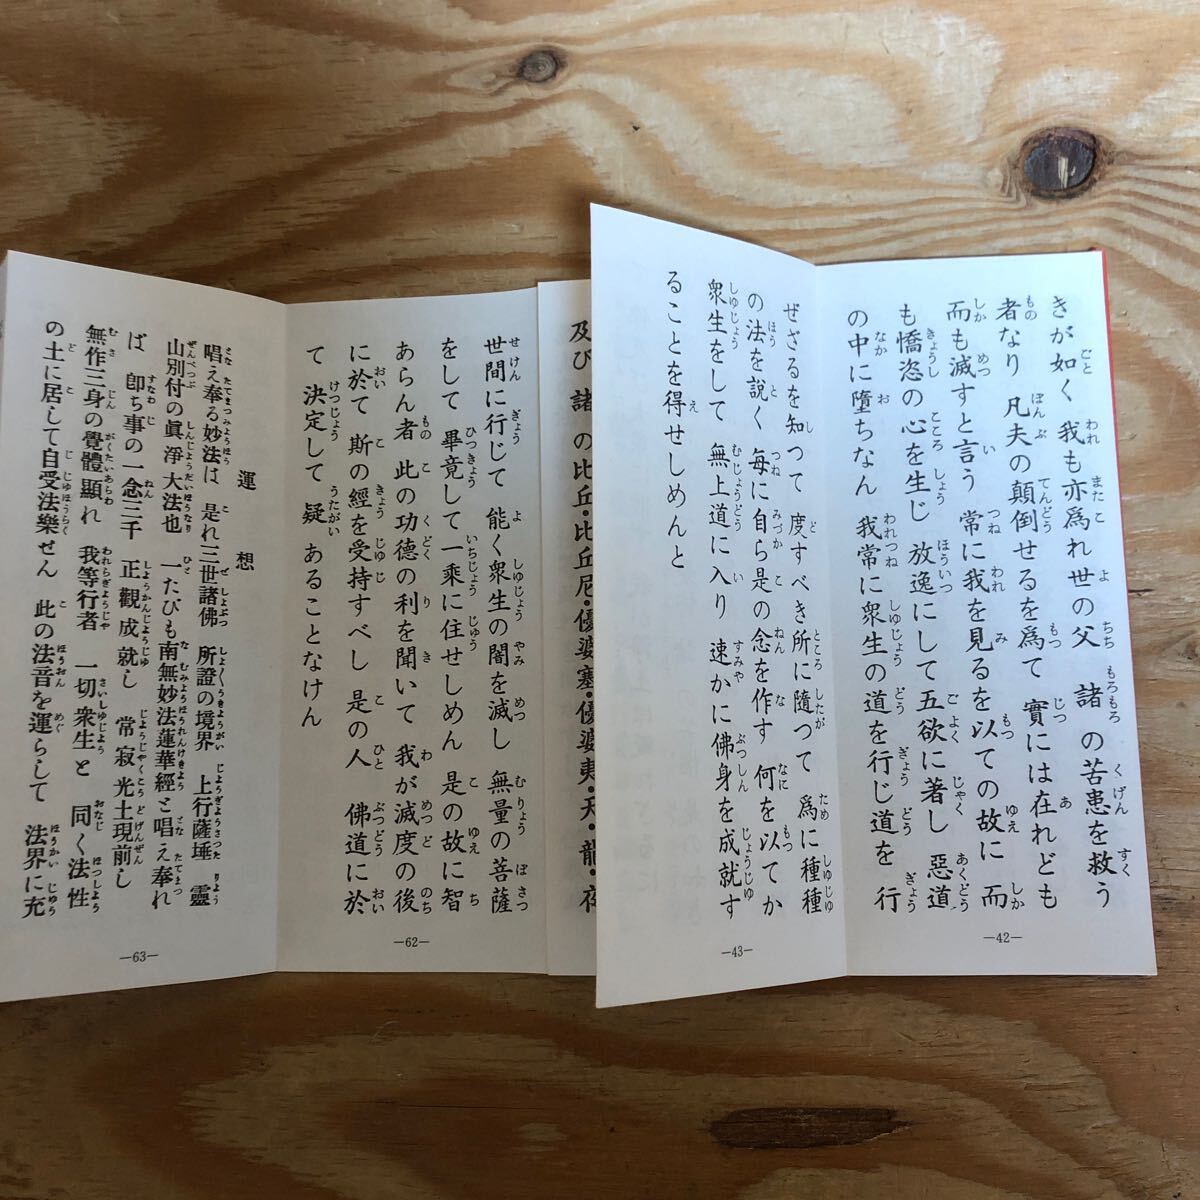 きが如く 我も亦爲れ世の父 諸の苦患を救う
者なり 凡夫の顛倒せるを爲て 實には在れども
而も滅すと言う 常に我を見るを以ての故に 而
も憍恣の心を生じ 放逸にして五欲に著し 惡道
の中に墮ちなん 我常に衆生の道を行じ道を 行
—42—
ぜざるを知つて 度すべき所に隨つて 爲に種種
の法を說く 毎に自ら是の念を作す 何を以てか
衆生をして 無上道に入り 速かに佛身を成就す
ることを得せしめんと
—43—
及び 諸 の比丘・比丘尼・優婆塞・優婆夷・天・龍・夜
世間に行じて 能く衆生の闇を滅し 無量の菩薩
をして 畢竟して一乘に住せしめん 是の故に智
あらん者 此の功德の利を聞いて 我が滅度の後
に於て 斯の經を受持すべし 是の人 佛道に於
て 決定して疑 あることなけん
—62—
運想
唱え奉る妙法は 是れ三世諸佛 所證の境界 上行薩埵 靈
山別付の眞淨大法也 一たびも南無妙法蓮華經と唱え奉れ
ば 卽ち事の一念三千 正觀成就し 常寂光土現前し
無作三身の覺體顯れ 我等行者 一切衆生と 同く法性
の土に居して自受法樂せん 此の法音を運らして 法界に充
—63—